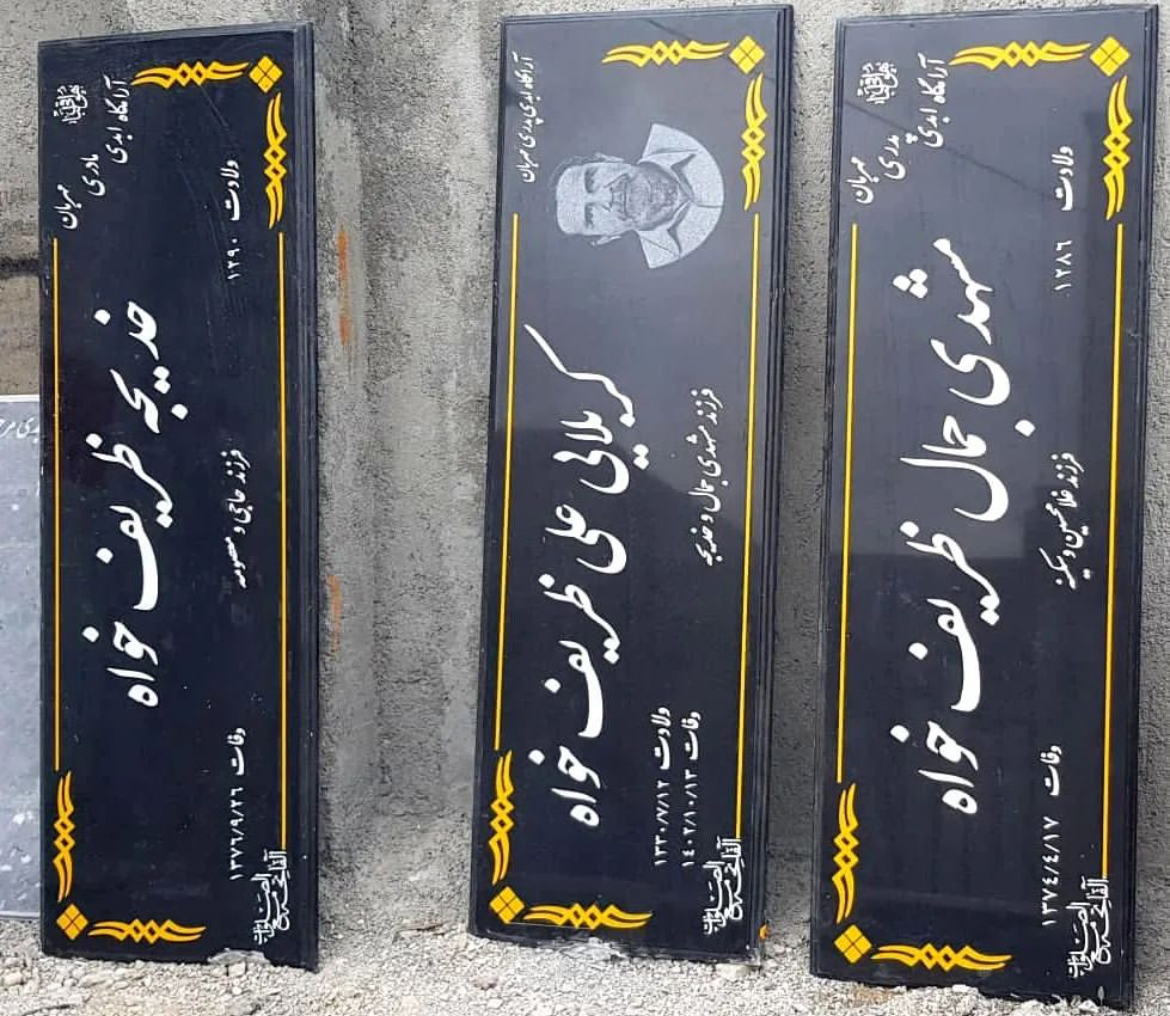 آرامگاه ابدی
مادری
مهربان
ولادت ۱۲۹۰
خدیجه ظریف خواه
فرزند حاجی و معصومه
وفات ۱۳۷۶/۹/۲۶
الفاتحه مع الصلوات
آرامگاه ابدی پدری مهربان
کربلایی علی ظریف خواه
فرزند مشهدی جمال و خدیجه
ولادت ۱۳۳۰/۷/۱۲
وفات ۱۴۰۲/۱۰/۱۳
الفاتحه مع الصلوات
آرامگاه ابدی
پدری
مهربان
ولادت ۱۲۸۶
مشهدی جمال ظریف خواه
فرزند غلامحسین و سکینه
وفات ۱۳۷۴/۴/۱۷
الفاتحه مع الصلوات